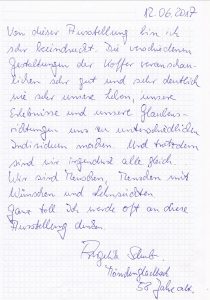 12.06.2017
Von dieser Ausstellung bin ich
sehr beeindruckt. Die verschiedenen
Gestaltungen der Koffer veranschau-
lichen sehr gut und sehr deutlich
wie sehr unsere Leben, unsere
Erlebnisse und unsere Glaubens-
richtungen uns zu unterschiedlichen
Individuen machen. Und trotzdem
sind wir irgendwie alle gleich.
Wir sind Menschen, Menschen mit
Wünschen und Sehnsüchten
Ganz toll Ich werde oft an diese
Ausstellung denken
Mönchengladbach
58 Jahre alt